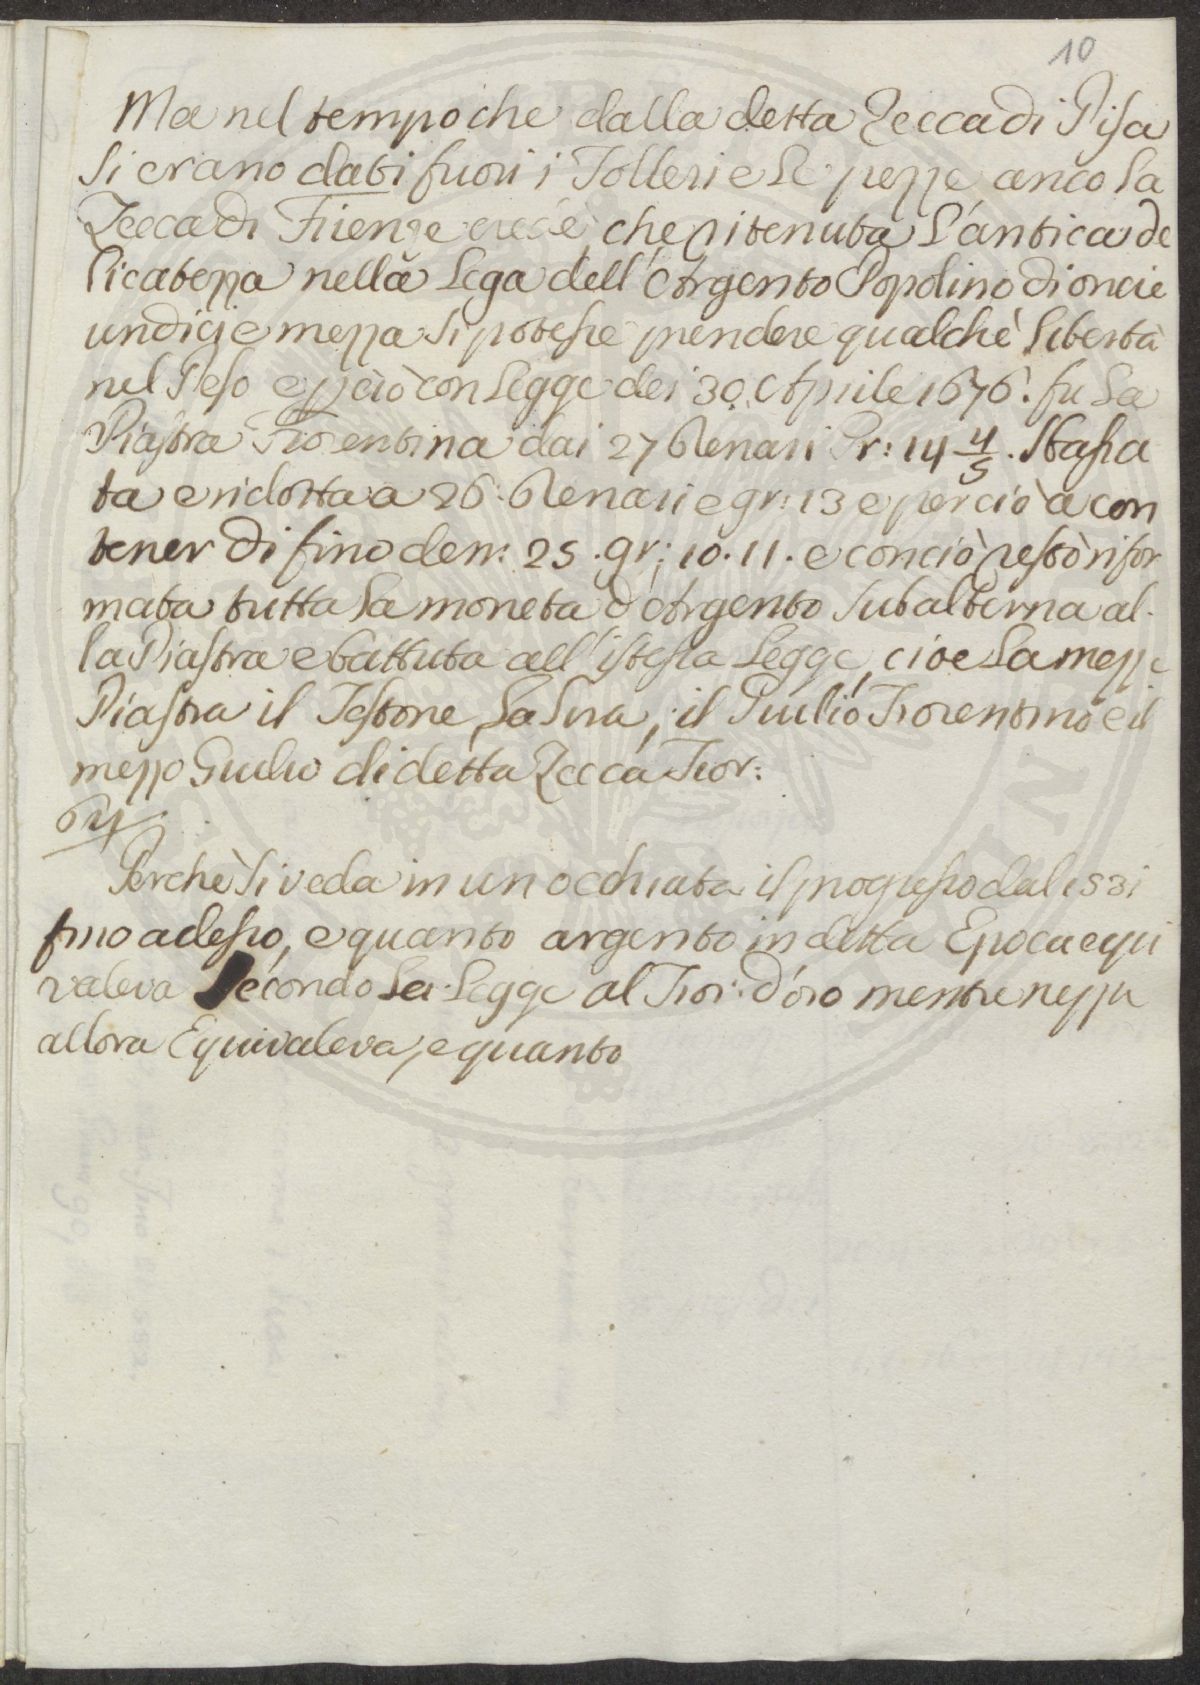 10
Ma nel tempo che dalla detta Zecca di Pisa
si erano dati fuori i Tolleri e le pezze, anco la
Zecca di Firenze che ritenuta l'antica de
licatezza nella Lega dell'Argento Popolino di oncie
undici e mezza si potesse prendere qualche libertà
nel Peso e perciò con Legge dei 30 Aprile 1676. fu la
Piastra Fiorentina dai 27 Denari Gr: 14 4/5. sbassa
ta e ridotta a 26. Denari e gr: 13 e perciò a con
tener di fino den: 25. gr: 10. 11. e con ciò restò rifor
mata tutta la moneta d'Argento subalterna al-
la Piastra e battuta all'istessa Legge, cioe la mezz
Piastra il Testone, la Lira, il Giulio Fiorentino e il
mezzo Giulio di detta Zecca Fior:
Perchè si veda in un occhiata il progresso dal 1531
fino adesso, e quanto argento in detta Epoca equi
valeva secondo la Legge al Fior: d'oro mentre
allora Equivaleva, e quanto